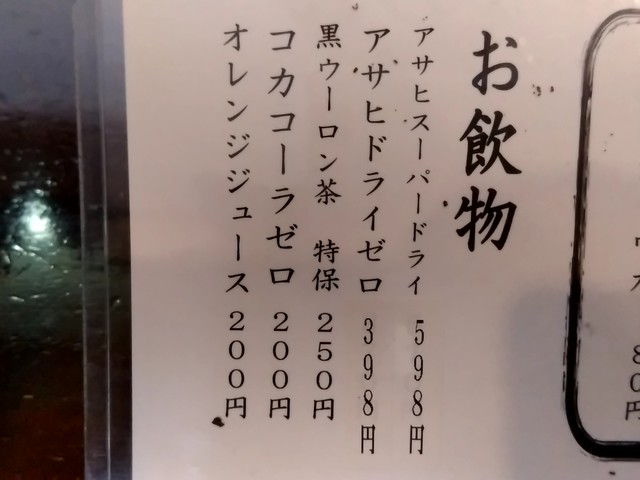 お飲物
アサヒスーパードライ 598円
アサヒドライゼロ 398円
黒ウーロン茶 特保 250円
コカコーラゼロ 200円
オレンジジュース 200円